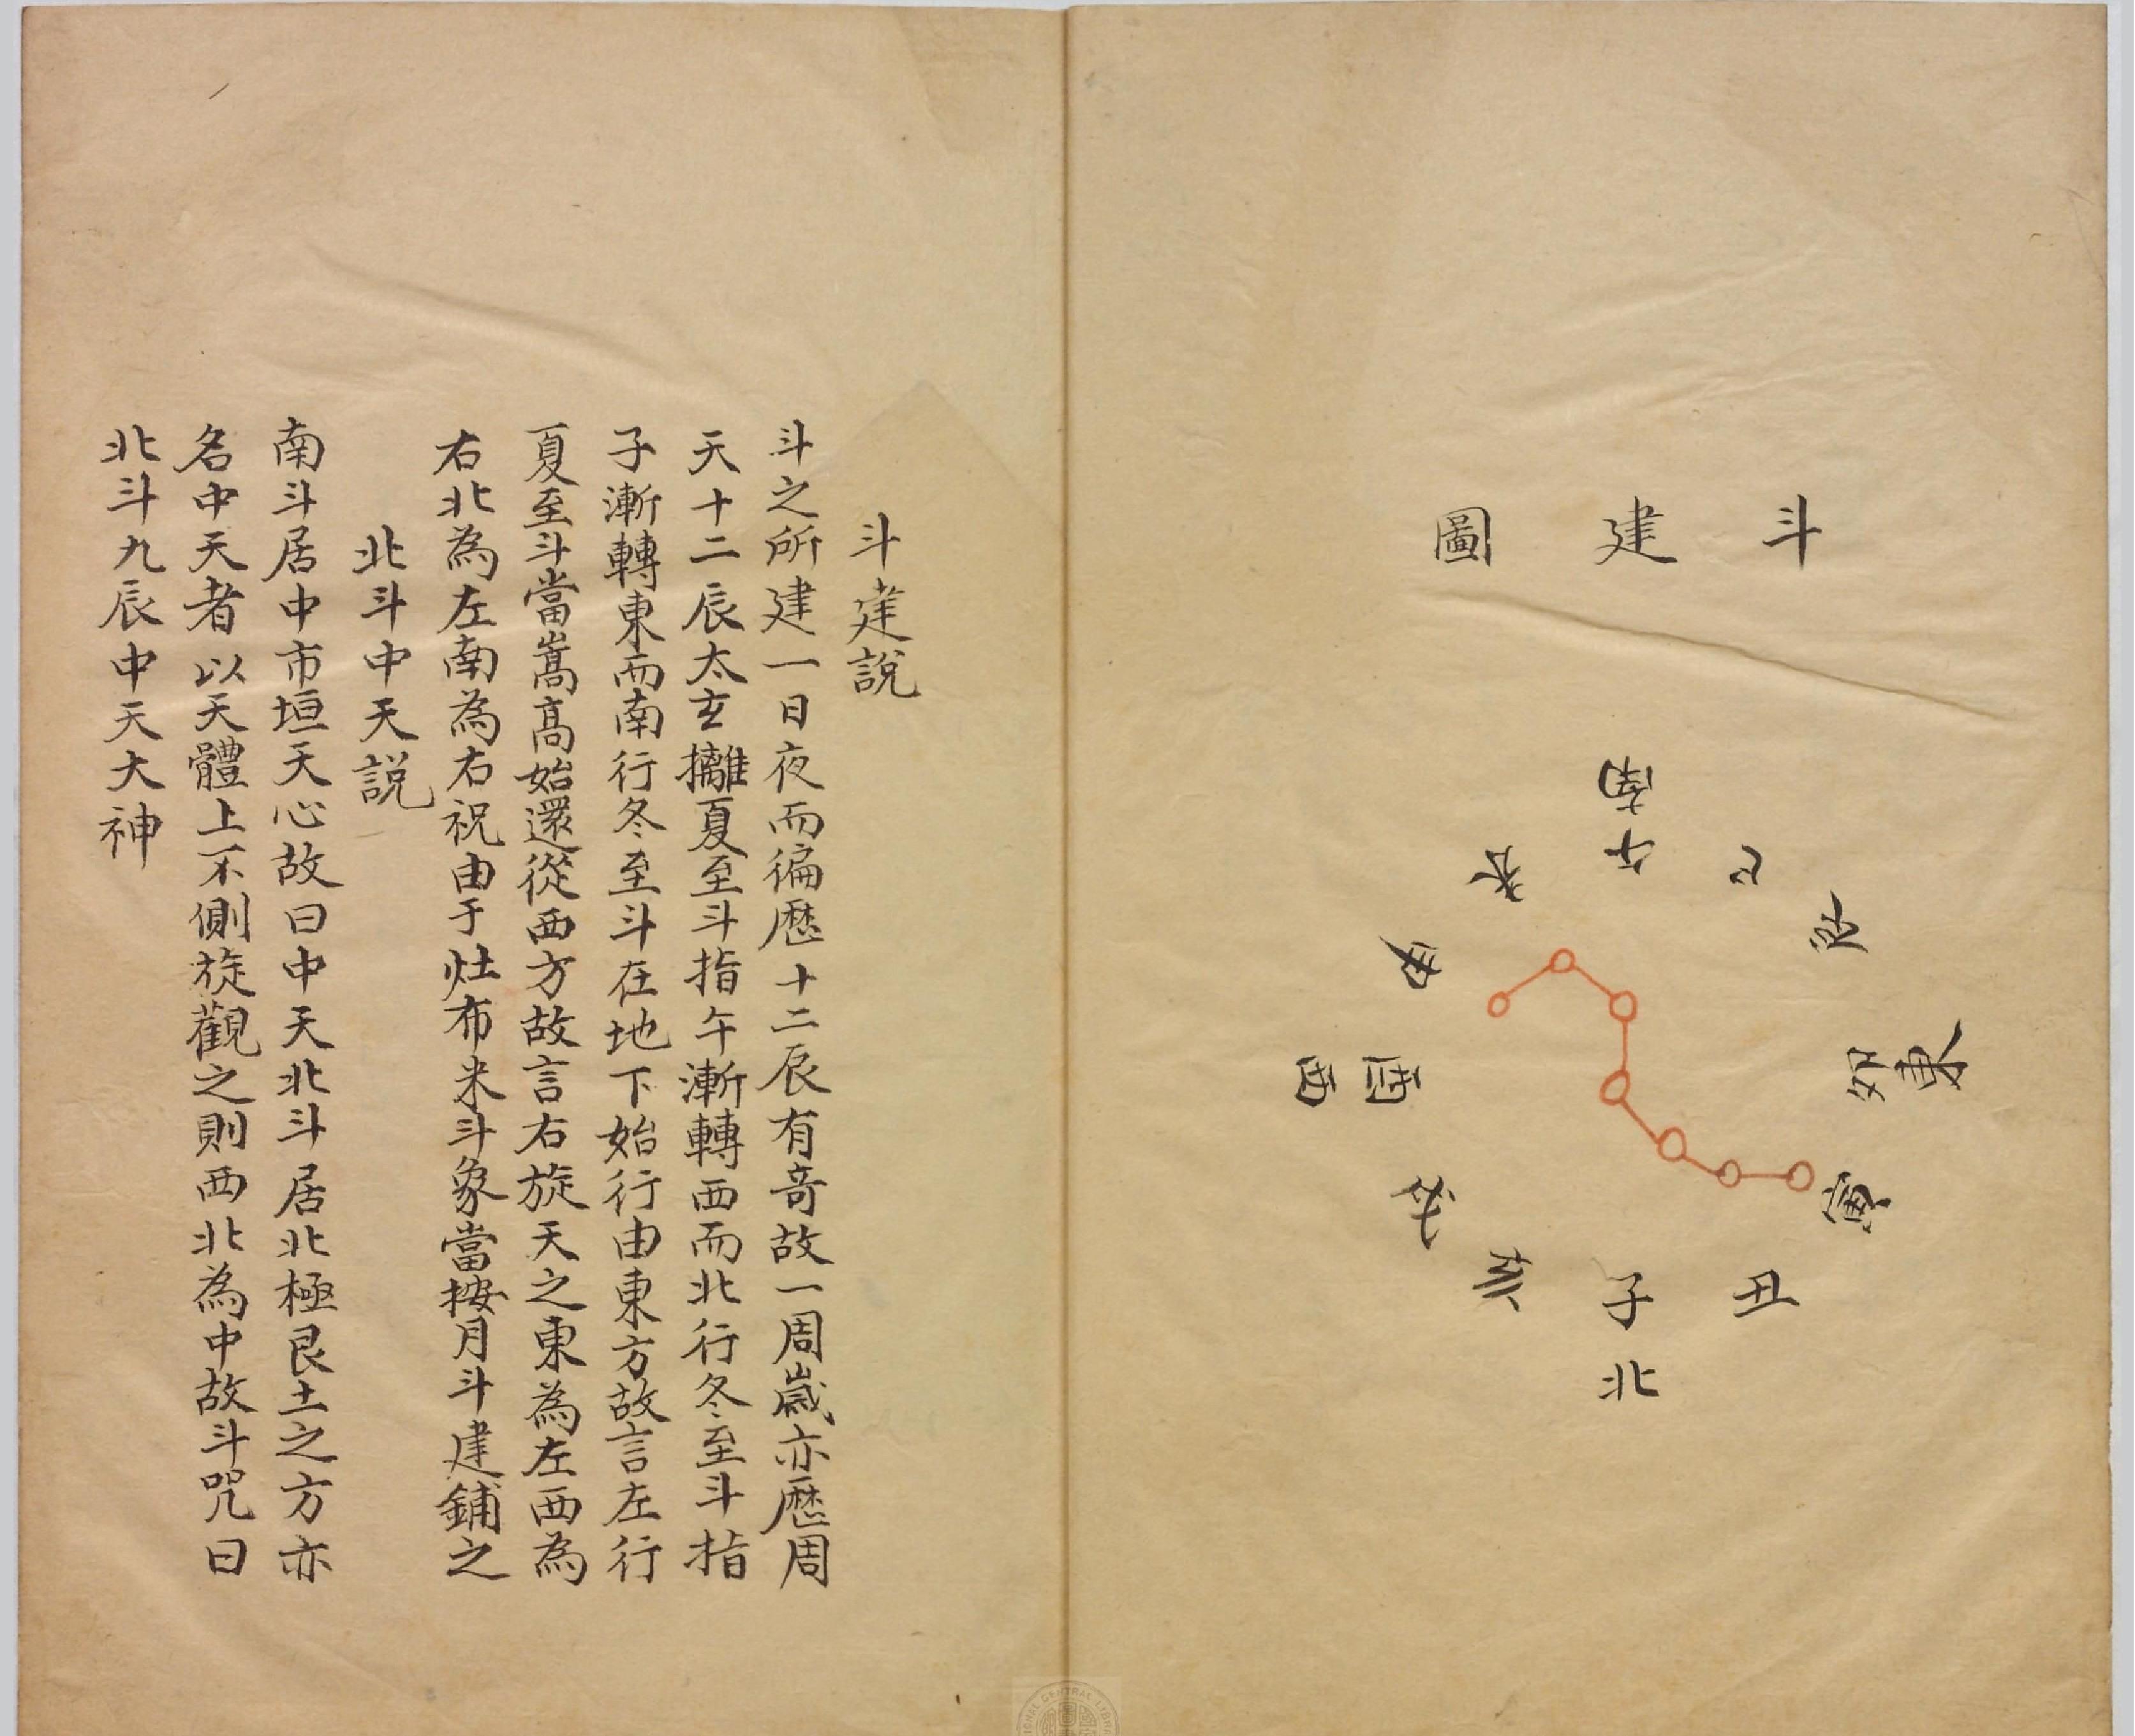 斗建圖
南
午
巳
未
辰
申
卯
東
酉
西
寅
戌
亥
子
丑
北
斗建說
斗之所建一日夜而徧歷十二辰有竒故一周歲亦歷周
天十二辰太玄攡夏至斗指午漸轉西而北行冬至斗指
子漸轉東而南行冬至斗在地下始行由東方故言左行
夏至斗當嵩高始還從西方故言右旋天之東為左西為
右北為左南為右祝由于灶布米斗象當按月斗建鋪之
北斗中天説
南斗居中市垣天心故曰中天北斗居北極艮土之方亦
名中天者以天體上不側旋觀之則西北為中故斗咒曰
北斗九辰中天大神